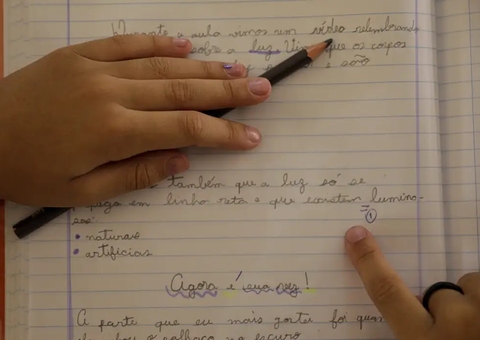 Durante a aula vimos um vídeo relembrando
sobre a luz. que os corpos
são
também que a luz só se
em linha reta e que existem lumino-
sos:
1
• naturais
• artificias
Agora é sua vez!
A parte que eu mais gostei foi quan
o palhaço no escuro